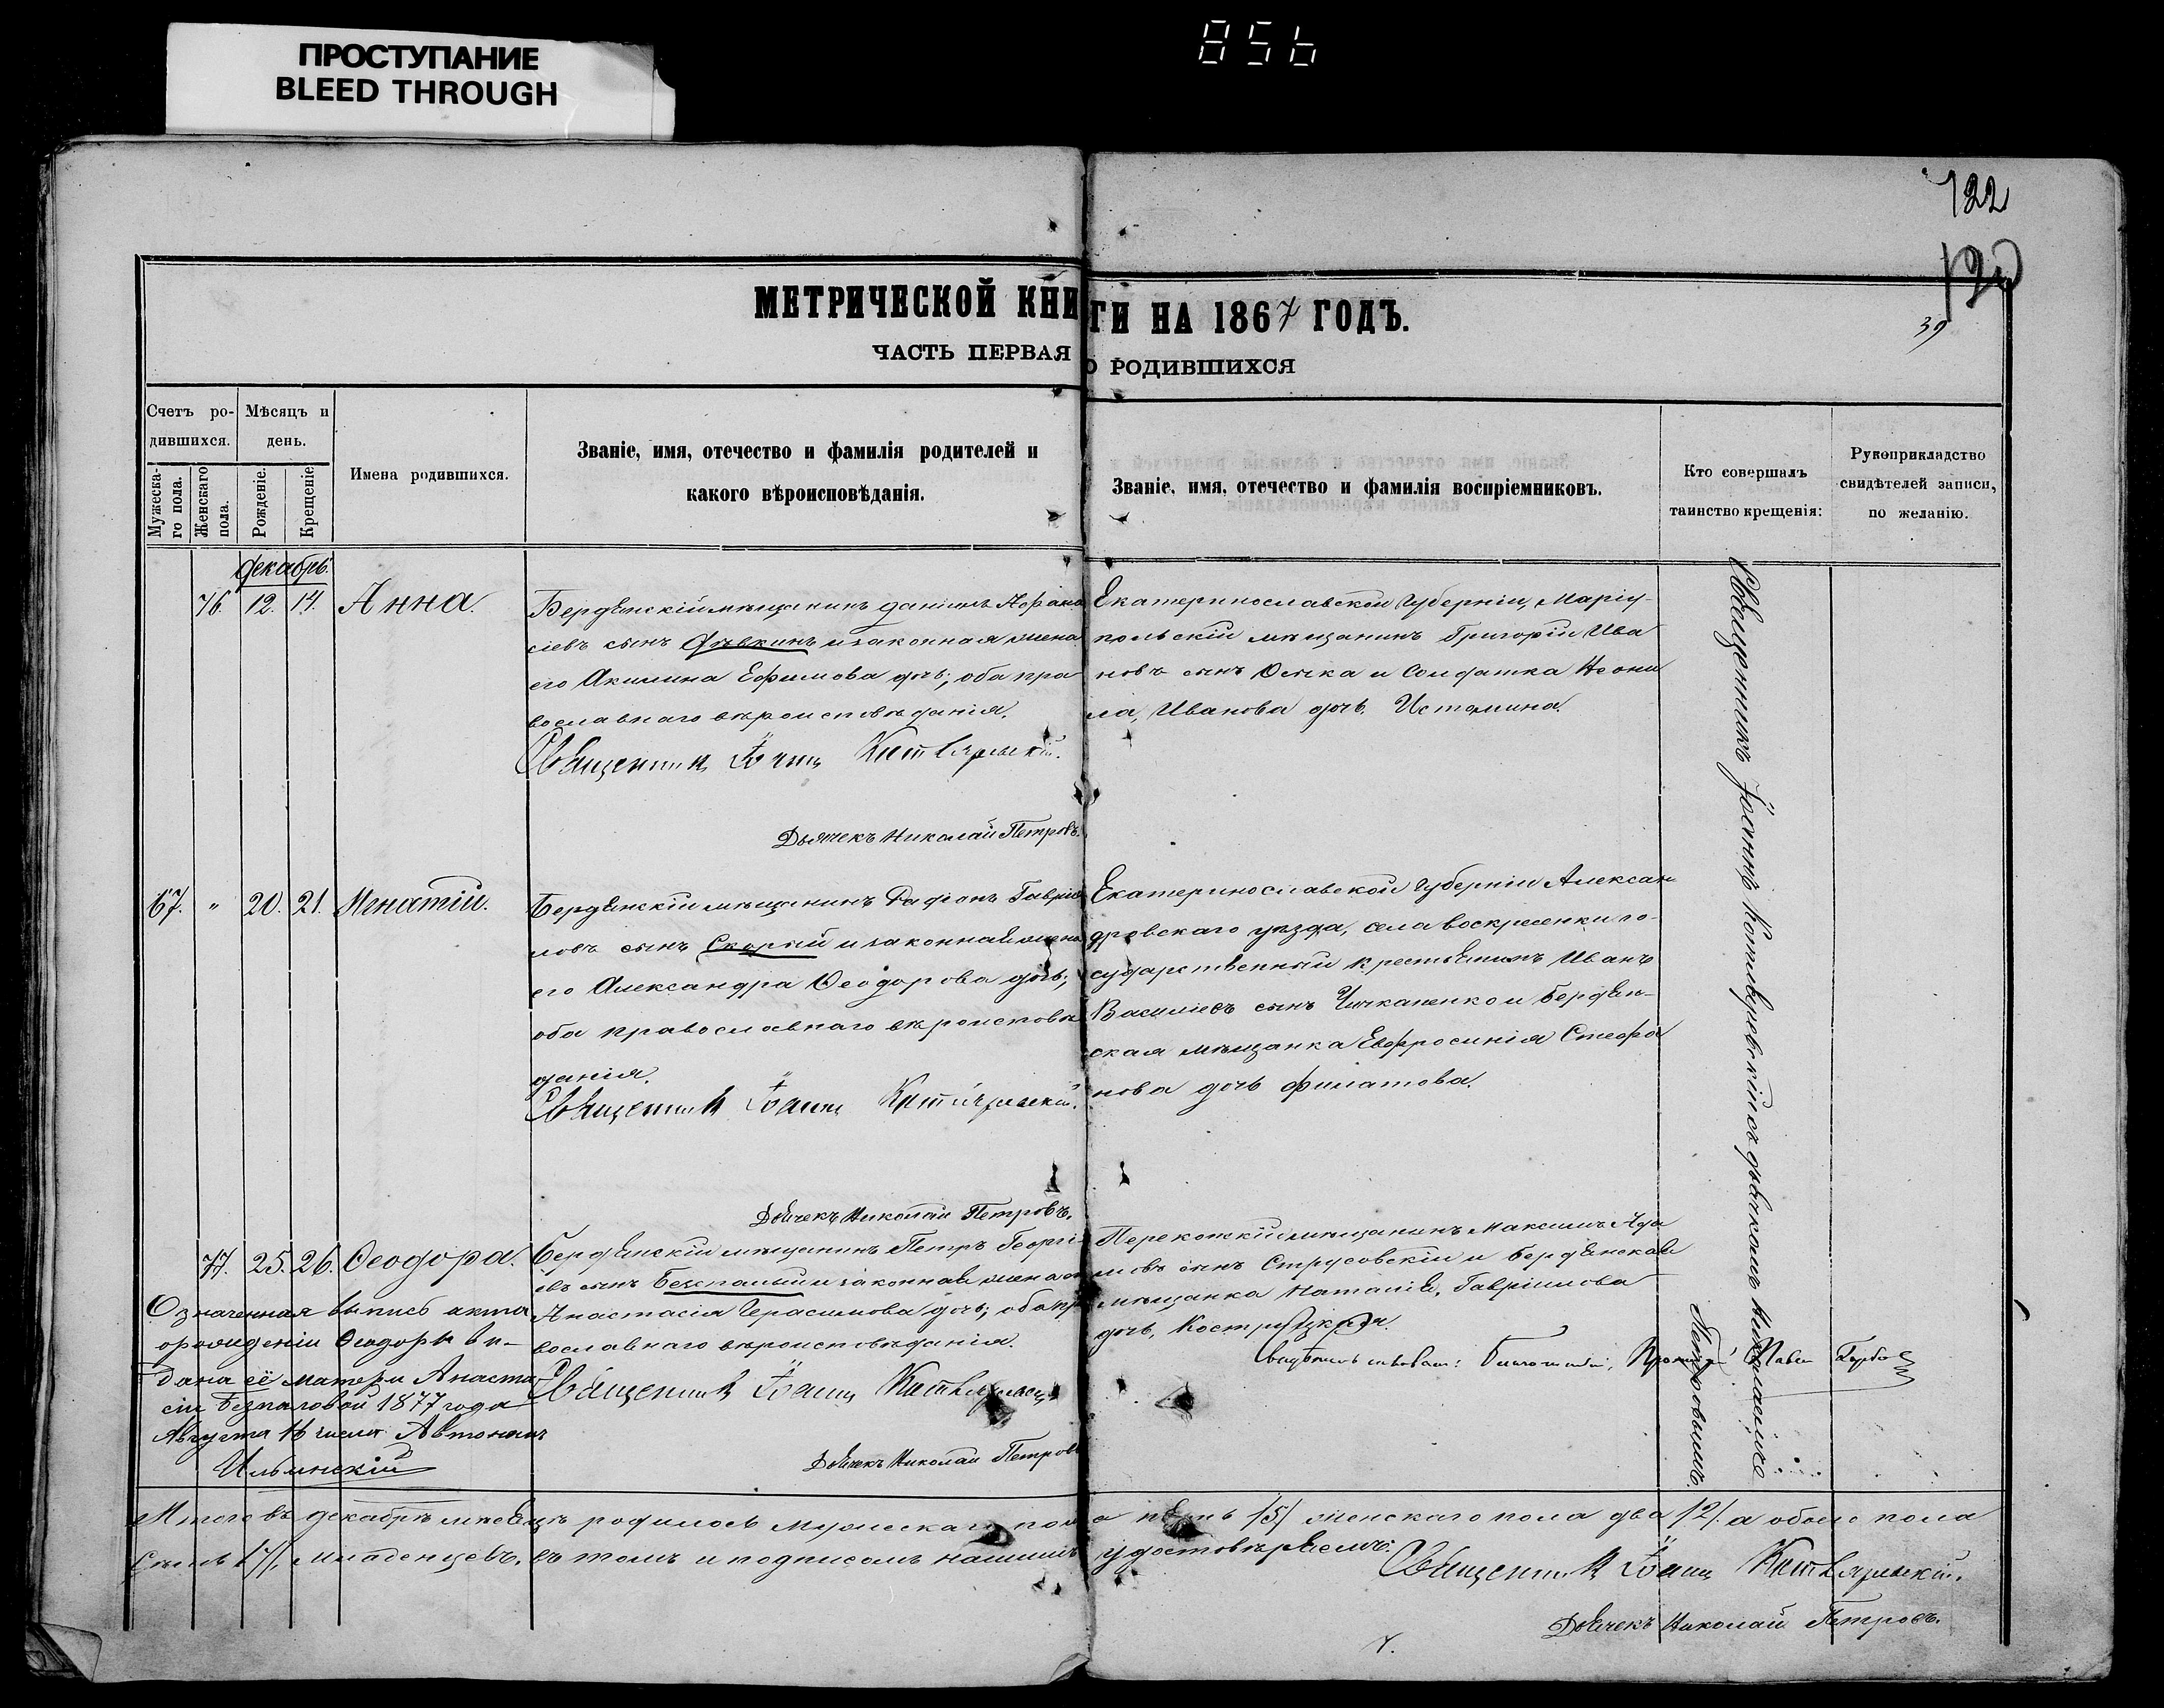 ПРОСТУПАНИЕ
BLEED THROUGH
856
122
120
39
МЕТРИЧЕСКОЙ КНИГИ НА 1867 ГОДЪ.
ЧАСТЬ ПЕРВАЯ О РОДИВШИХСЯ
Счетъ ро-
дившихся.
Мужеска-
го пола.
Женскаго
пола.
Мѣсяцъ и
день.
Рожденіе.
Крещеніе
Имена родившихся.
Званіе, имя, отечество и фамилія родителей и
какого вѣроисповѣданія.
Званіе, имя, отечество и фамилія воспріемниковъ.
Кто совершалъ
таинство крещенія:
Рукоприкладство
свидѣтелей записи,
по желанію.
Декабрь.
76. 12. 14. Анна.
Бердянскій мѣщанинъ Даніилъ Афана
сіевъ сынъ и законная жена
его Акилина Ефимова дочь; оба пра
вославнаго вѣроисповѣданія.
Священникъ Іоаннъ
Дьячекъ Николай Петровъ.
Екатеринославской Губерніи, Маріу-
польскій мѣщанинъ Григорій Ива
новъ сынъ и Солдатка Неони
ла, Иванова дочь, Истомина.
67. " 20. 21. Игнатій.
Бердянскій мѣщанинъ Гавріи
ловъ сынъ Скорый и законная жена
его Александра Ѳеодорова дочь;
оба православнаго вѣроисповѣ
данія.
Священникъ Іоаннъ
Дьячекъ Николай Петровъ.
Екатеринославской Губерніи Алексан
дровскаго уѣзда, села Воскресенки го-
сударственный крестьянинъ Иванъ
Василіевъ сынъ и Бердян-
ская мѣщанка Евфросинія Стефа
нова дочь Филатова.
77. 25. 26. Ѳеодора.
Бердянскій мѣщанинъ Петръ Георгі-
евъ сынъ Безпалый и законная жена его
Анастасія Герасимова дочь; оба пра
вославнаго вѣроисповѣданія.
Священникъ Іоаннъ
Дьячекъ Николай Петровъ
Перекопскій мѣщанинъ Максимъ Ада
мовъ сынъ Струсовскій и Бердянская
мѣщанка Наталія, Гавріилова
дочь,
Означенная выпись акта
о рожденіи Ѳеодоры вы-
дана её матери Анаста
сіи Безпаловой 1877 года
Августа 16 числа
Ильинскій
Священникъ Іоаннъ съ дьячкомъ Николаемъ
Петровымъ.
Итого въ декабрѣ мѣсяцѣ родилось мужескаго пола пять /5/ женскаго пола два /2/. а обоего пола
семь /7/. младенцевъ. въ томъ и подписомъ нашимъ удостовѣряемъ.
Священникъ Іоаннъ
Дьячекъ Николай Петровъ.